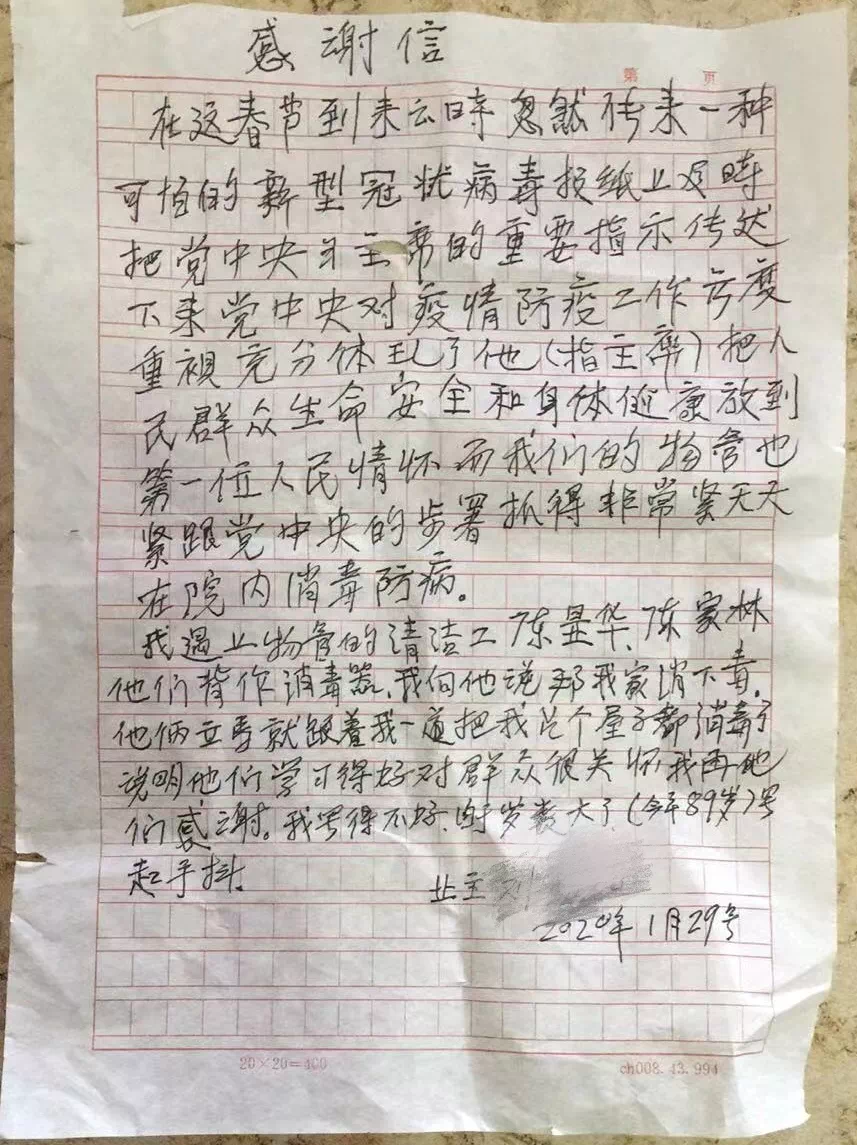 感谢信
第 页
在这春节到来之時忽然传来一种
可怕的新型冠状病毒报纸上及時
把党中央习主席的重要指示传达
下来党中央对疫情防疫工作高度
重视充分体现了他(指主席)把人
民群众生命安全和身体健康放到
第一位人民情怀而我们的物管也
紧跟党中央的步署抓得非常紧天天
在院内消毒防病。
我遇上物管的清洁工陈昱华、陈家林
他们背作消毒器,我向他说那我家消下毒.
他俩立马就跟着我一道把我这个屋子都消毒了
说明他们学习得好对群众很关怀我再他
们感谢。我写得不好,岁数大了(今年89岁)写
起手抖.
业主刘
2020年1月29号
20×20=400
ch008.43.994